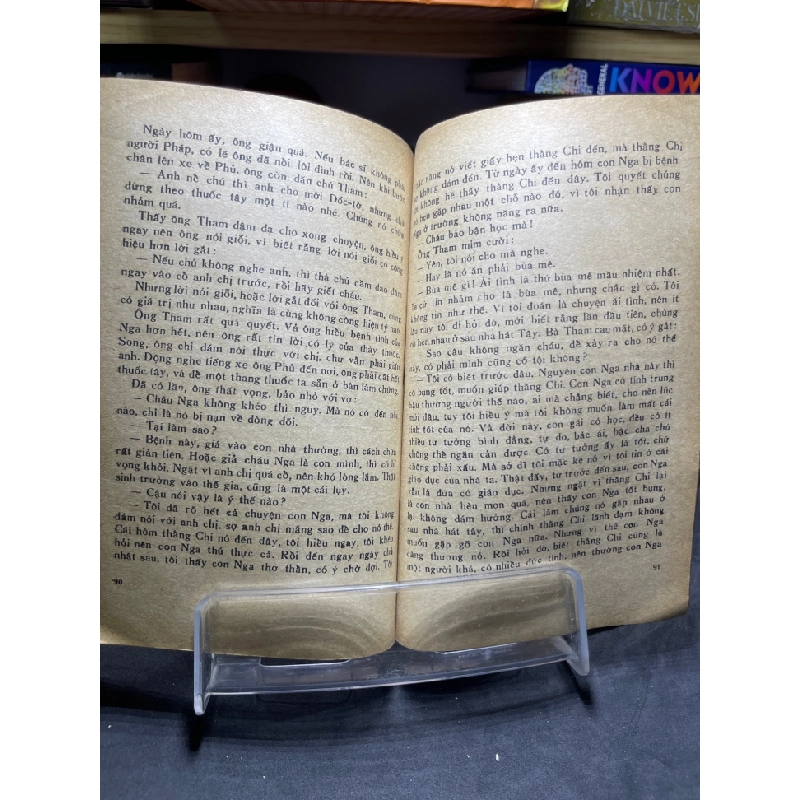 ĐẠI VIỆT SỬ
GENERAL
KNOW
Ngày hôm ấy, ông giận quá. Nếu bác sĩ không phải
người Pháp, có lẽ ông đã nổi lôi đình rồi. Nên khi bước
chân lên xe về Phủ, ông còn dặn chú Tham:
— Anh nể chú thì anh cho mời Đốc-tờ, nhưng chớ
dùng theo thuốc tây một tí nào nhé. Chúng nó chữa
nhảm quá.
Thấy ông Tham dậm dạ cho xong chuyện, ông hiểu ý
ngay nên ông nói giỗi, vì biết rằng lời nói giỗi có công
hiệu hơn lời gắt:
— Nếu chú không nghe anh, thì thà chú cầm dao đâm
ngay vào cổ anh chị trước, rồi hãy giết cháu.
Nhưng lời nói giỗi, hoặc lời gắt đối với ông Tham,
có giá trị như nhau, nghĩa là cùng không công hiệu tý nào.
Ông Tham rất quả quyết. Vả ông hiểu bệnh tình của
Nga hơn hết, nên ông rất tin lời có lý của thầy thuốc.
Song, ông chỉ dám nói thực với chị, chứ vẫn phải giấu
anh. Động nghe tiếng xe ông Phủ đến nơi, ông phải cất hết
thuốc tây, và để một thang thuốc ta sẵn ở bàn làm chứng.
Đã có lần, ông thất vọng, bảo nhỏ với vợ:
— Cháu Nga không khéo thì nguy. Mà nó có đến nỗi
nào, chỉ là nó bị nạn về dòng dõi.
— Tại làm sao?
— Bệnh này, giá vào con nhà thường, thì cách chữa
rất giản tiện. Hoặc giả cháu Nga là con mình, thì có hi
vọng khỏi. Ngặt vì anh chị quá cổ, nên khó lòng lắm. Thật
sinh trưởng vào thế gia, cũng là một cái lụy.
— Cậu nói vậy là ý thế nào?
— Tôi đã rõ hết cả chuyện con Nga, mà tôi không
dám nói với anh chị, sợ anh chị mắng sao để cho nó thế.
Cái hôm thằng Chi nó đến đây, tôi hiểu ngay, tôi khéo
hỏi nên con Nga thú thực cả. Rồi đến ngay ngày chủ
nhật sau, tôi thấy con Nga thơ thẩn, có ý chờ đợi. Tôi
90
rằng nó viết giấy hẹn thằng Chi đến, mà thằng Chi
không dám đến. Từ ngày ấy đến hôm con Nga bị bệnh
không hề thấy thằng Chi đến đây. Tôi quyết chúng
hẹn gặp nhau một chỗ nào đó, vì tôi nhận thấy con
ở trường không năng ra nữa.
— Cháu bảo bận học mà!
Ông Tham mỉm cười:
— Yên, tôi nói cho mà nghe.
— Hay là nó ăn phải bùa mê.
— Bùa mê gì! Ái tình là thứ bùa mê mầu nhiệm nhất.
cứ tin nhảm cho là bùa mê, nhưng chắc gì có. Tôi
không tin như thế. Vì tôi đoán là chuyện ái tình, nên ít
lâu nay tôi đi hỏi dò, mới biết rằng lần đầu tiên, chúng
nó học nhau ở sác nhà hát Tây. Bà Tham cau mặt, có ý gắt:
— Sao cậu không ngăn cháu, để xảy ra cho nó thế
này, có phải mình cũng có tội không?
— Tôi có biết trước đâu. Nguyên con Nga nhà này thì
có bụng tốt, muốn giúp thằng Chi. Con Nga có tính trung
hậu thương người thế nào, ai mà chẳng biết, cho nên lúc
mới đầu, tuy tôi hiểu ý mà tôi không muốn làm mất cái
tính tốt của nó. Và đời này, con gái có học, đều có ít
nhiều tư tưởng bình đẳng, tự do, bác ái, bậc cha chú
không thể ngăn cản được. Có tư tưởng ấy là tốt, chứ
không phải xấu. Mà sở dĩ tôi mặc kệ nó vì tôi tin ở cái
giáo dục của nhà ta. Thật đấy, từ trước đến sau, con Nga
vẫn là đứa có giáo dục. Nhưng ngặt vì thằng Chi lại
là con nhà hèn mọn quá, nên thấy con Nga tốt bụng,
lại không dám hưởng. Cái lầm chúng nó gặp nhau ở
sau nhà hát tây, thì chính thằng Chi lãnh đạm không
muốn gặp gỡ con Nga nữa. Nhưng vì thế con Nga
càng thương nó. Rồi hỏi dò, biết thằng Chi cũng là
một người khá, có nhiều đức tính, nên thường con Nga
91